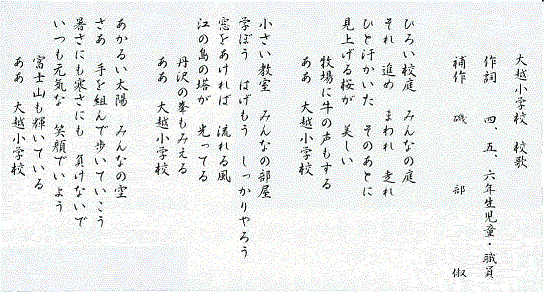 大越小学校　校歌
作詞　四、五、六年生児童・職員
補作　磯部　俶
ひろい校庭　みんなの庭
それ　進め　まわれ　走れ
ひと汗かいた　そのあとに
見上げる桜が　美しい
牧場に牛の声もする
ああ　大越小学校
小さい教室　みんなの部屋
学ぼう　はげもう　しっかりやろう
窓をあければ　流れる風
江の島の塔が　光ってる
丹沢の峯もみえる
ああ　大越小学校
あかるい太陽　みんなの空
さあ　手を組んで歩いていこう
暑さにも寒さにも　負けないで
いつも元気な　笑顔でいよう
富士山も輝いている
ああ　大越小学校